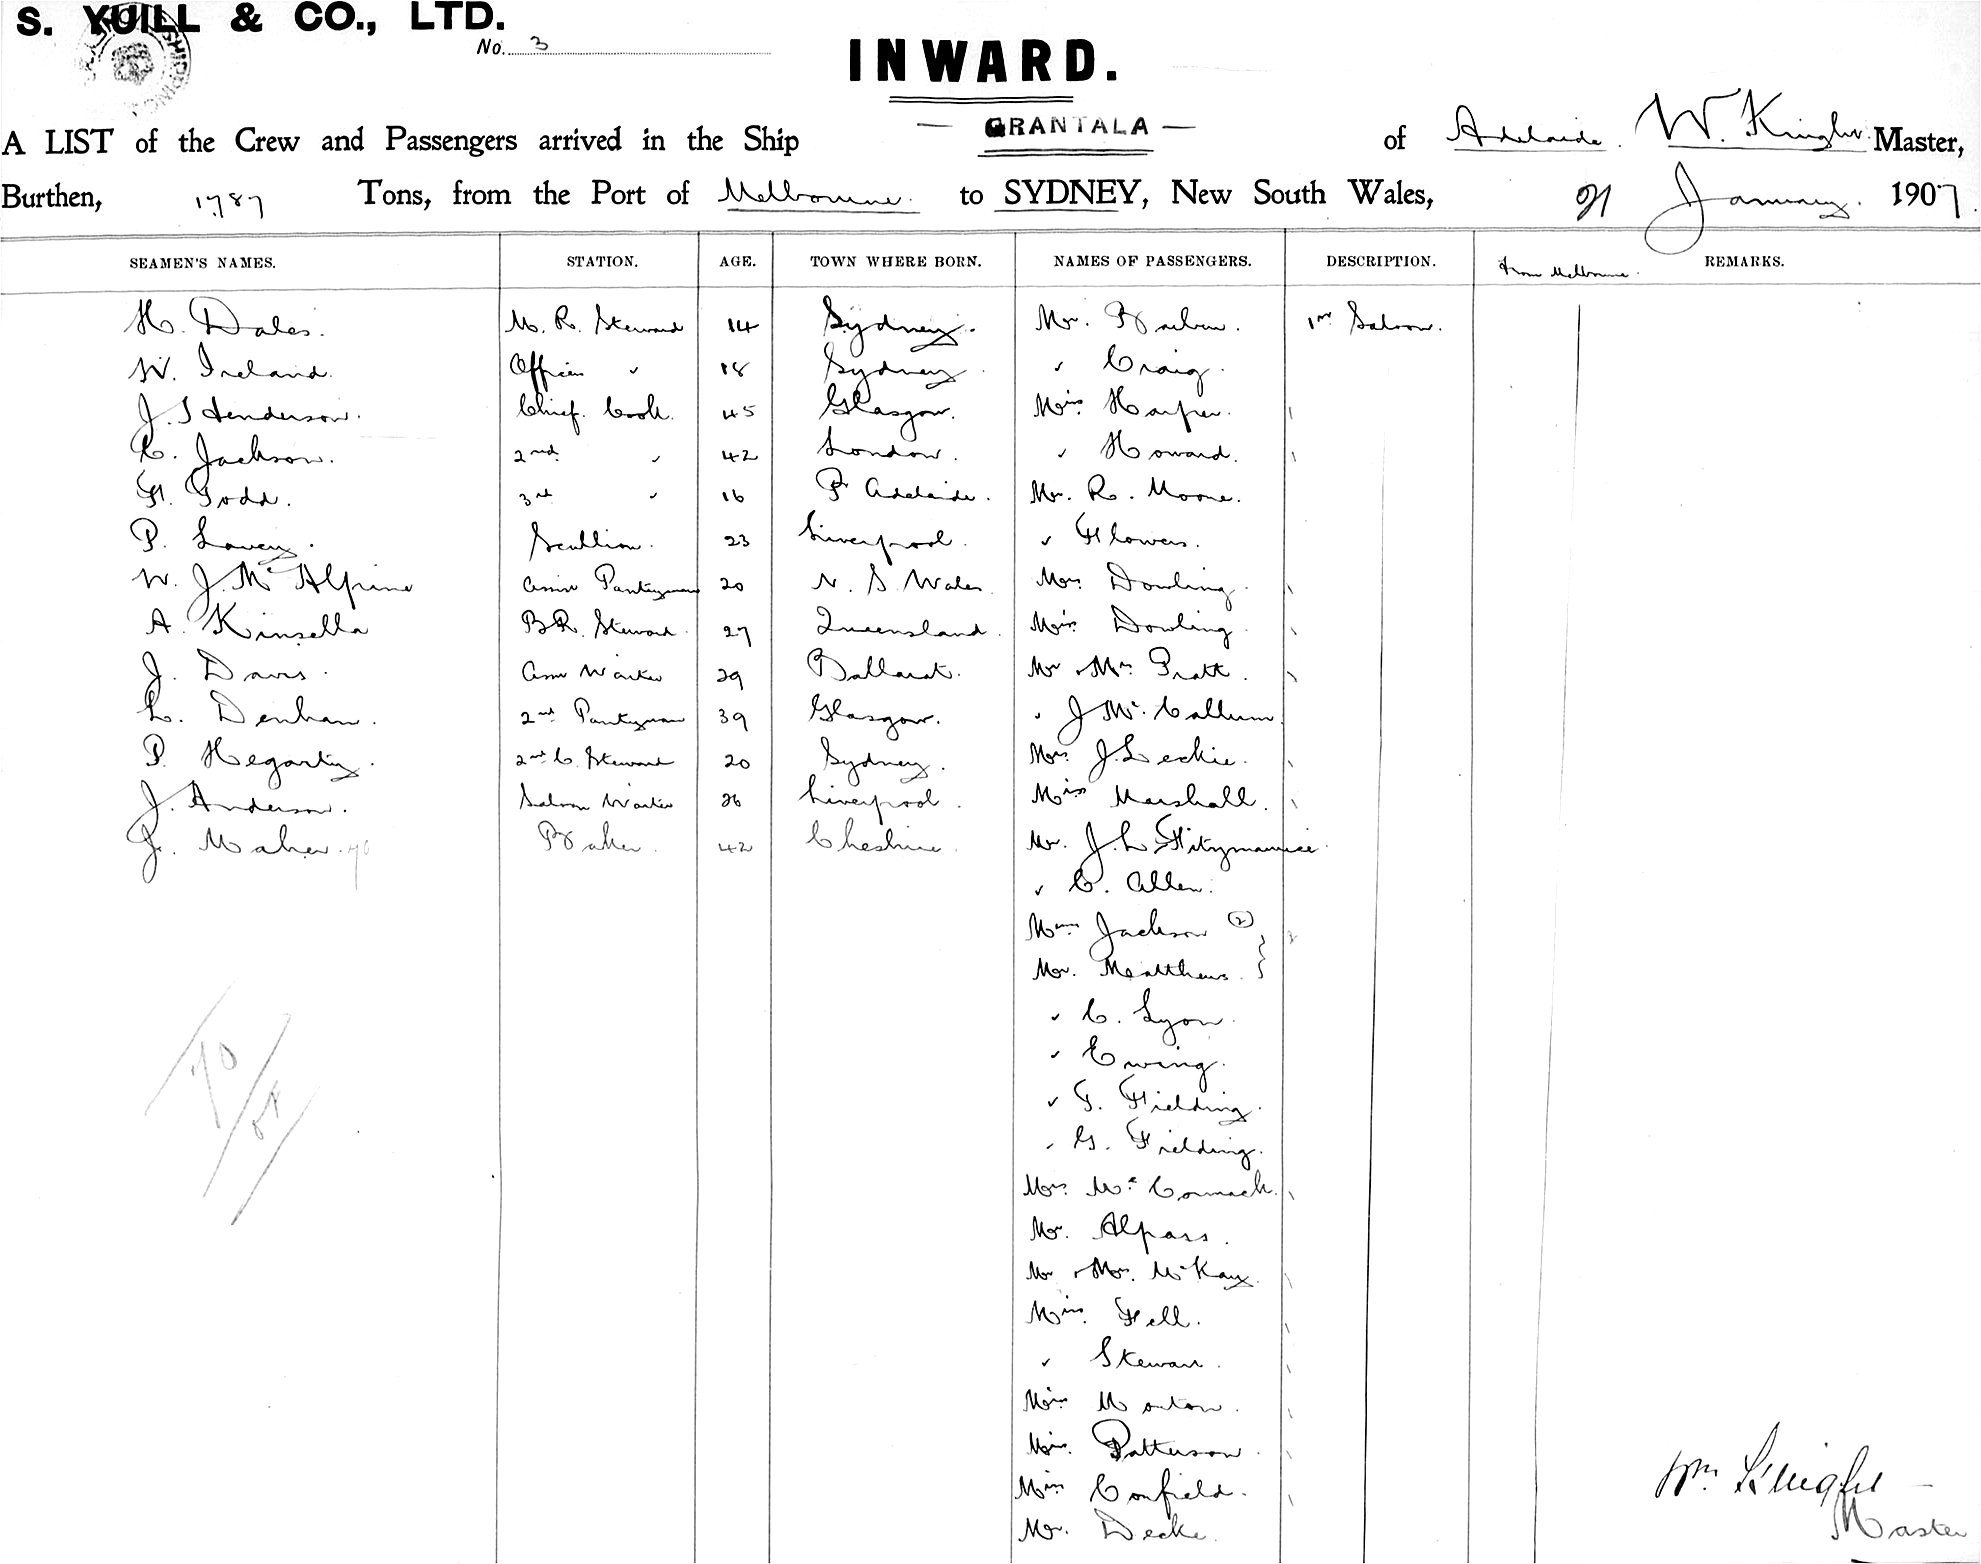 S. YUILL & CO., LTD.
No. 3
INWARD.
A LIST of the Crew and Passengers arrived in the Ship — GRANTALA — of Adelaide. W. Knight. Master,
Burthen, 1787 Tons, from the Port of Melbourne. to SYDNEY, New South Wales, 21 January. 1907.
SEAMEN'S NAMES. STATION. AGE. TOWN WHERE BORN. NAMES OF PASSENGERS. DESCRIPTION. From Melbourne. REMARKS.
H. Dales. M. R. Steward 14 Sydney. Mr. 1st Saloon.
W. Ireland. Officers " 18 Sydney " Craig.
J. S Henderson. Chief. Cook. 45 Glasgow. Miss Harper.
C. Jackson. 2nd " 42 London. " Howard.
F. Todd. 3rd " 16 Pt Adelaide. Mr. R. Moore.
P. Lavery. Scullion. 23 Liverpool. " Flowers.
W. J. Mc Alpine Asst Pantryman 20 N. S. Wales Mrs. Dowling.
A. Kinsella B.R. Steward. 27 Queensland. Miss Dowling.
J. Davis. Asst Waiter 29 Ballarat. Mr & Mrs. Pratt.
L. Denham. 2nd Pantryman 39 Glasgow. " J Mc. Callum
P. Hegarty. 2nd C. Steward 20 Sydney. Mrs J. Leckie.
J. Anderson. Saloon Waiter 26 Liverpool. Miss Marshall.
J. Maher. Baker. 42 Cheshire. Mr. J. L. Fitzmaurice.
" C. Allen.
Misses Jackson (2)
Mr. Matthews.
" C. Lyon.
" Ewing.
" T. Fielding.
" G. Fielding.
Mrs. Mc Cormack.
Mr. Alpass.
Mr & Mrs. McKay.
Miss. Fell.
" Stewart.
Miss Morton.
Miss. Patterson.
Miss Confield.
Mr. Decke.
70
Wm Knight
Master